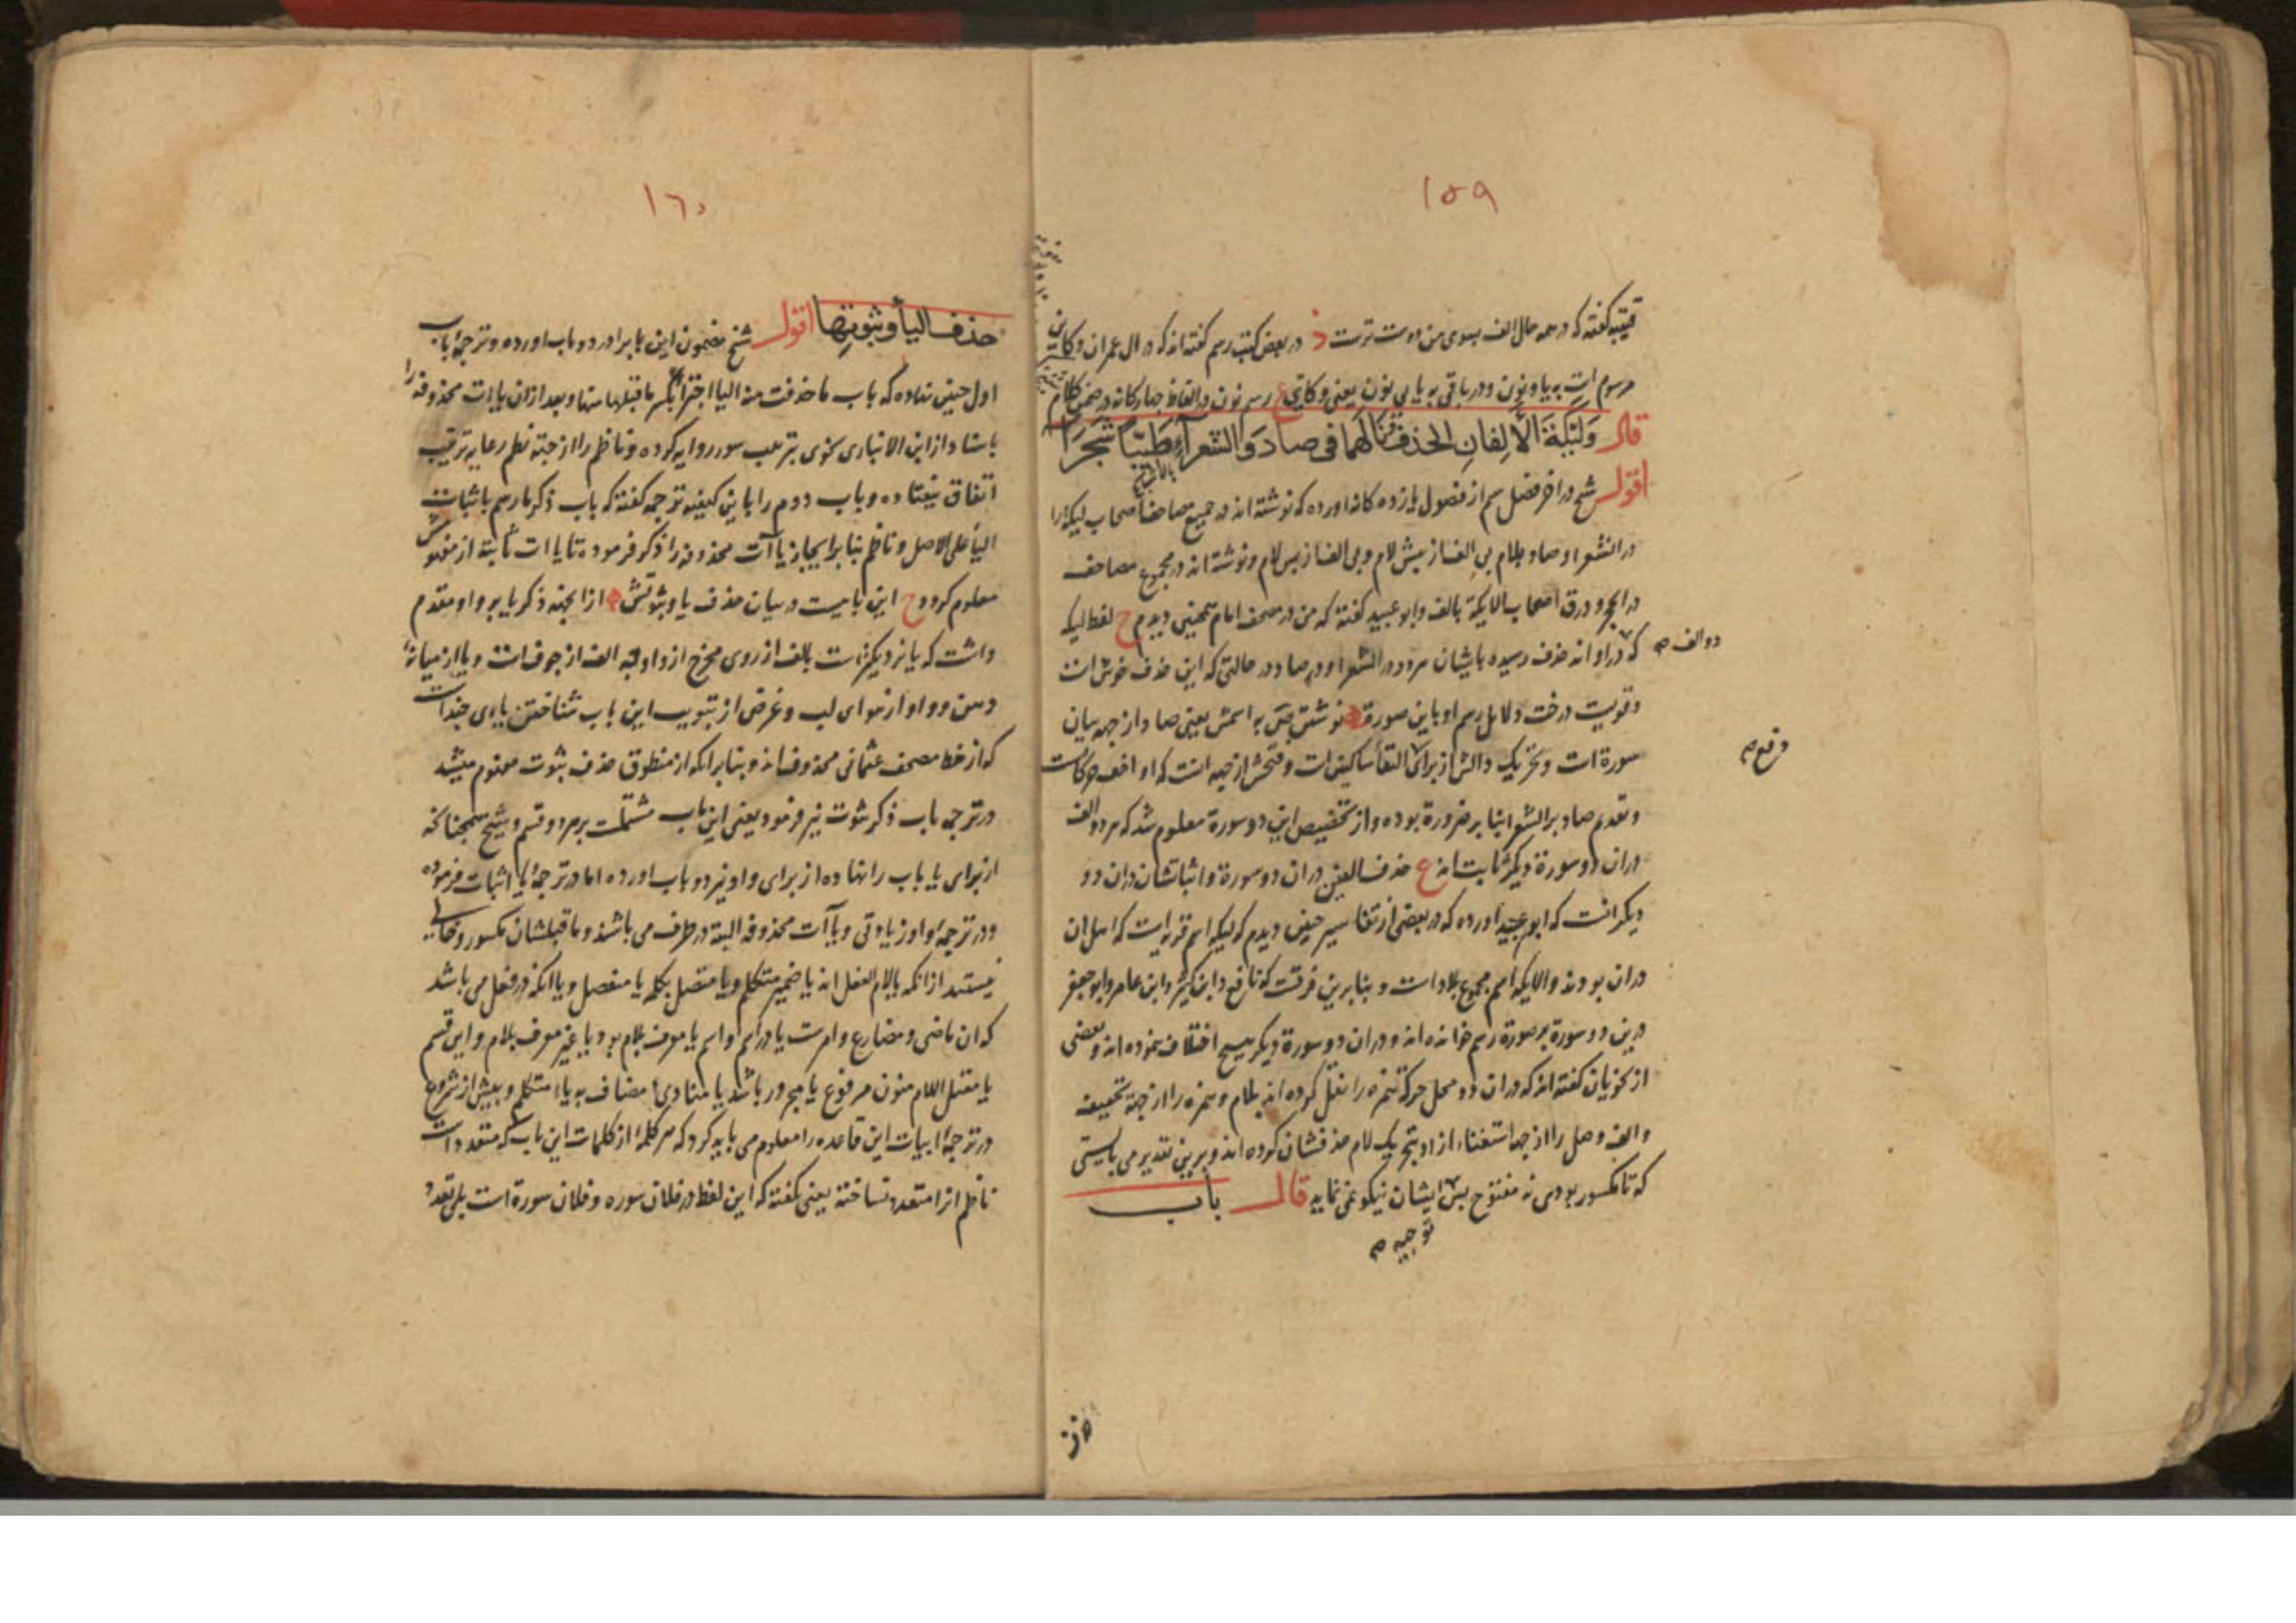 ١٥٩
قتیبه گفته که در همه حال الف بسوی من دوست ترست در بعض کتب رسم گفته اند که در ال عمران وکاین
مرسوم است به یا و نون و در باقی به یا بی نون یعنی وکایی ع رسم نون در الفاظ چهارکانه در ضمن کلام
قال وَلَيْكَةَ الْأَلِفَانِ الحذف نالهما فی صاد وَالشعرآءِ طَيِّبًا شَجَرَا
اقول شیخ در اخر فصل سیم از فصول یازده کانه اورده که نوشته اند در جمیع مصاحف اصحاب لیکه را
در الشعرا و صاد بلام بی الف از پیش لام و بی الف از پس لام و نوشته اند در مجموع مصاحف
در الحجر و در ق اصحاب الایکة بالف و ابو عبید گفته که من در مصحف امام همچنین دیدم ح لفظ لیکه
که دراو اند حذف رسیده بایشان هردو در الشعرا و در صاد در حالتی که این حذف خوش است
دو الف
و قویست درخت دلایل رسم او باین صورة نوشتن ص به اسمش یعنی صاد از جهه بیان
سورة است و تحریک دالش از برای التقأ ساکنین است و فتحش از جهه انست که او اخف حرکات است
وقع
و تقدیم صاد بر الشعرا بنا بر ضرورة بوده و از تخصیص این دو سورة معلوم شد که هر دو الف
در ان دو سورة دیکر ثابت اند ع حذف الفین در ان دو سورة و اثباتشان در ان دو
دیکر انست که ابو عبید اورده که در بعضی از تفاسیر چنین دیدم که لیکه اسم قریه ایست که اهل ان
در ان بودند و الایکه اسم مجموع بلاد است و بنا برین فرقست که نافع و ابن کثیر و ابن عامر و ابو جعفر
درین دو سورة بر صورة رسم خوانده اند و در ان دو سورة دیکر هیچ اختلاف ننموده اند و بعضی
از نحویان گفته اند که در ان دو محل حرکة همزه را نقل کرده اند بلام و همزه را از جهة تخفیف
و الف وصل را از جهة استغناء از او بتحریک لام حذفشان کرده اند و برین تقدیر می بایستی
که تا مکسور بودی نه مفتوح پس ایشان نیکو نمی نماید قال باب
توجیه
حذف
١٦٠
حذف الیأ وثبوتها اقول شیخ مضمون این باب را در دو باب اورده و ترجمۀ باب
اول چنین نهاده که باب ما حذفت منه الیا اجتزأ بکسر ما قبلها منها و بعد از ان یاات محذوفه را
باسناد از ابن الانباری نحوی بترتیب سور روایه کرده و ناظم را از جهة نظم رعایة ترتیب
اتفاق نیفتاده و باب دوم را باین کیفیه ترجمه گفته که باب ذکر ما رسم باثبات
الیأ علی الاصل و ناظم بنا بر ایجاز یاآت محذوفه را ذکر فرموده تا یاات ثابته از مفهومش
معلوم کردد ح این بابیست در بیان حذف یا و ثبوتش از انجهة ذکر یا بر واو مقدم
داشت که یا نزدیکترست بالف از روی مخرج از واو چه الف از جوف است و یا از میانۀ
دهن و واو از هوای لب و غرض از تبویب این باب شناختن یاءی چند است
که از خط مصحف عثمانی محذوف اند و بنا بر انکه از منطوق حذف ثبوت مفهوم میشد
در ترجمه باب ذکر ثبوت نیز فرمود یعنی این باب مشتملست بر هر دو قسم و شیخ همچنانکه
از برای یا باب را نهاده از برای واو نیز دو باب اورده اما در ترجمۀ یا اثبات فرموده
و در ترجمۀ واو زیادتی و یاآت محذوفه البتة در طرف می باشند و ما قبلشان مکسور و خالی
نیستند از انکه یا لام الفعل اند یا ضمیر متکلم و یا متصل بکلمه یا منفصل و یا انکه در فعل می باشد
که ان ماضی و مضارع و امرست یا در اسم و اسم یا معرف بلام بود یا غیر معرف بلام و این قسم
یا معتل اللام منون مرفوع یا مجرور باشد یا منادی مضاف به یاء متکلم و پیش از شروع
در ترجمۀ ابیات این قاعده را معلوم می باید کرد که هر کلمۀ از کلمات این باب که متعدد است
ناظم انرا متعدد نساخته یعنی نگفته که این لفظ در فلان سوره و فلان سورة است بلی تعدد